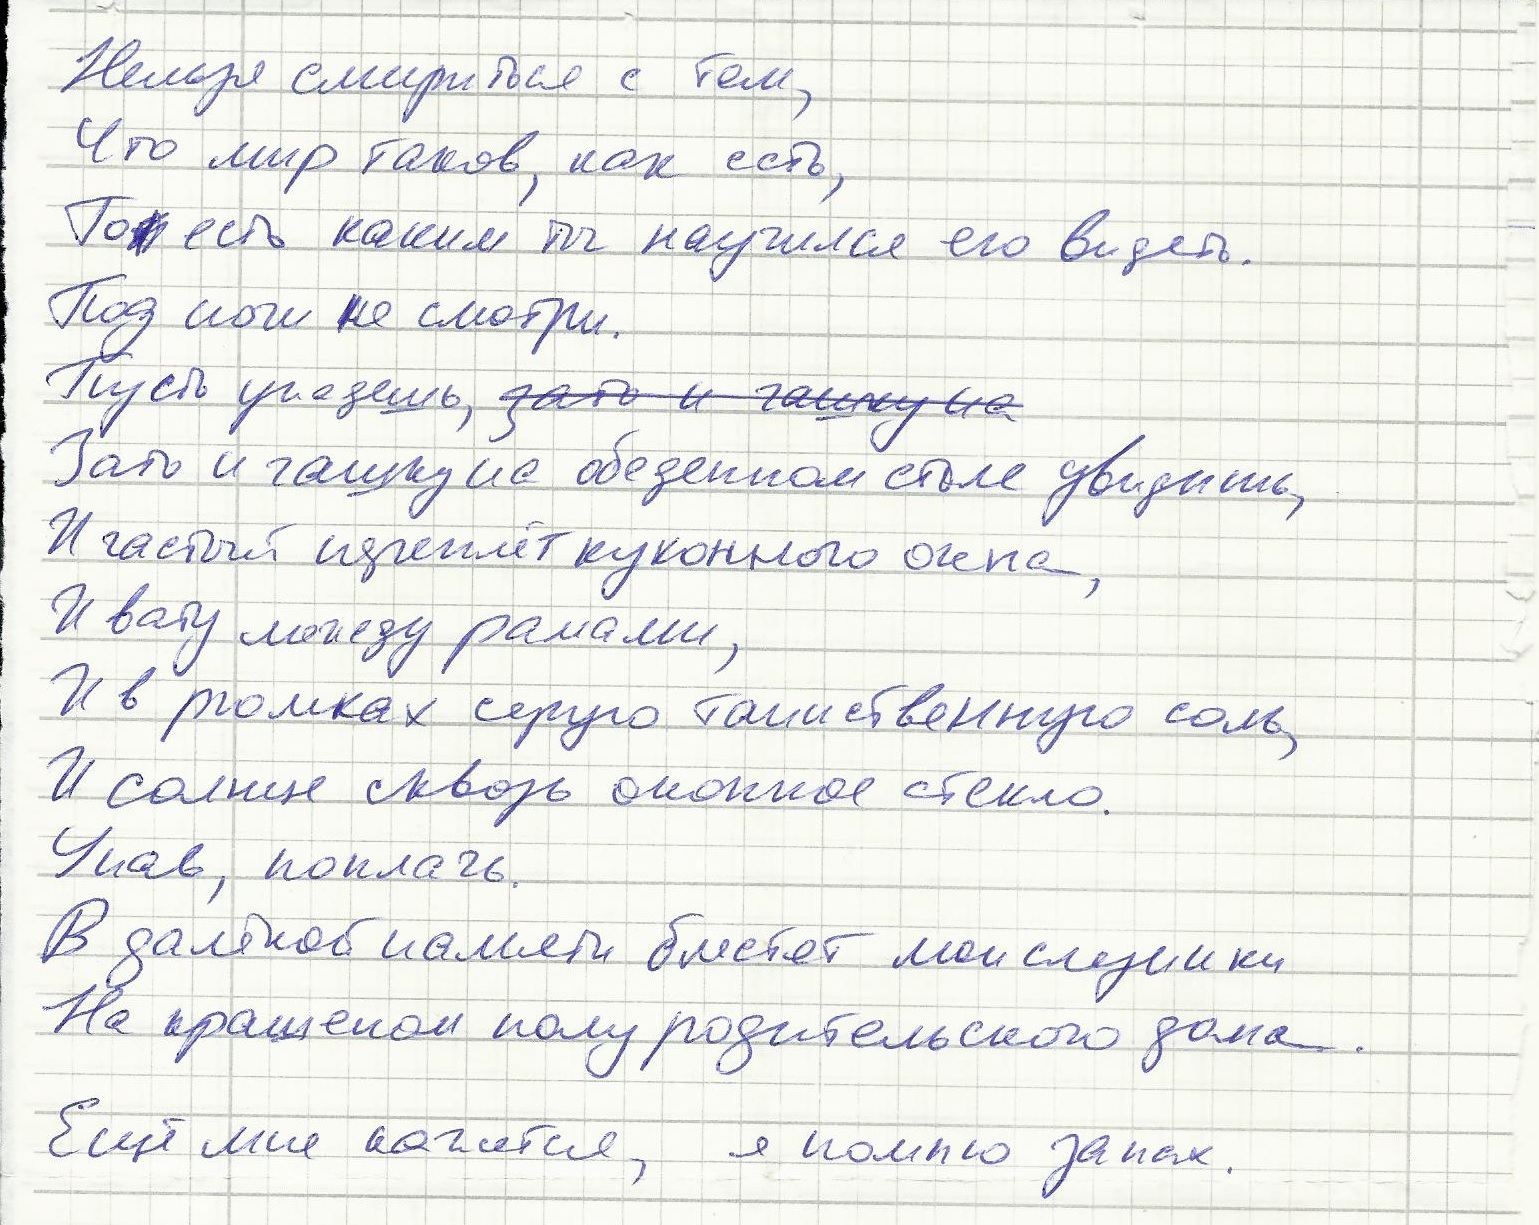 Нельзя смириться с тем,
Что мир таков, как есть,
То есть каким ты научился его видеть.
Под ноги не смотри.
Пусть упадешь, зато и чашку на
Зато и чашку на обеденном столе увидишь,
И частый переплёт кухонного окна,
И вату между рамами,
И в рюмках серую таинственную соль,
И солнце сквозь оконное стекло.
Упав, поплачь.
В далёкой памяти блестят мои слезинки
На крашеном полу родительского дома.
Ещё мне кажется, я помню запах.